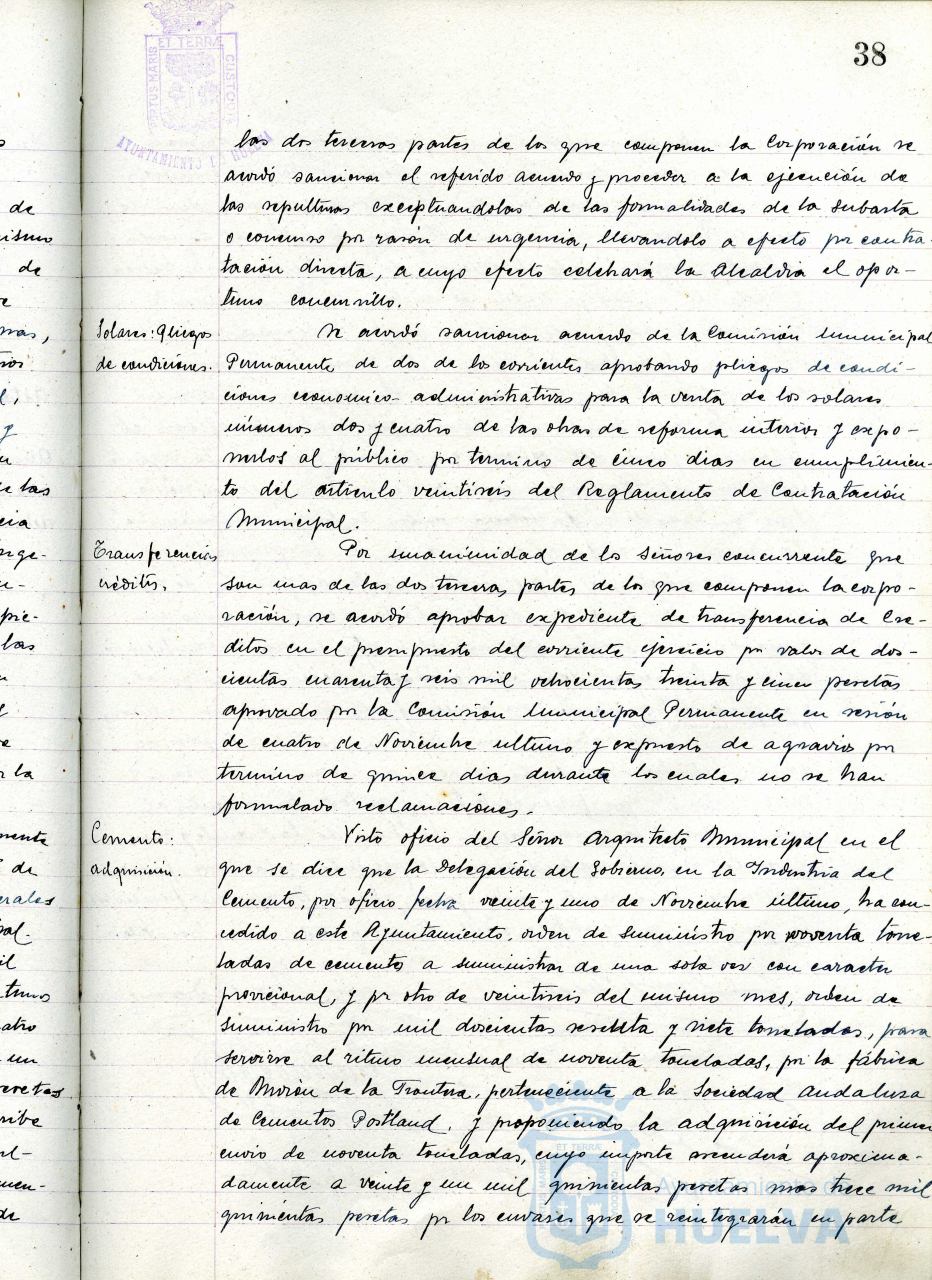 38
PORTUS MARIS
ET TERRÆ
CUSTODIA
AYUNTAMIENTO DE HUELVA
las dos terceras partes de los que componen la Corporación se
acordó sancionar el referido acuerdo y proceder a la ejecución de
las sepulturas exceptuandolas de las formalidades de la subasta
o concurso por razón de urgencia, llevandolo a efecto por contra-
tación directa, a cuyo efecto celebrará la Alcaldia el opor-
tuno concursillo.
Solares: Pliegos
de condiciones.
Se acordó sancionar acuerdo de la Comisión Municipal
Permanente de dos de los corrientes aprobando pliegos de condi-
ciones economico-administrativas para la venta de los solares
números dos y cuatro de las obras de reforma interior y expo-
nerlos al público por termino de cinco dias en cumplimien-
to del articulo veintiseis del Reglamento de Contratación
Municipal.
Transferencias
créditos.
Por unanimidad de los Señores concurrente que
son mas de las dos tercera partes de los que componen la corpo-
ración, se acordó aprobar expediente de transferencia de Cre-
ditos en el presupuesto del corriente ejercicio por valor de dos-
cientas cuarenta y seis mil ochocientas treinta y cinco pesetas
aprovado por la Comisión Municipal Permanente en sesión
de cuatro de Noviembre ultimo y expuesto de agravios por
termino de quince dias durante los cuales no se han
formulado reclamaciones.
Cemento:
adquisición.
Visto oficio del Señor Arquitecto Municipal en el
que se dice que la Delegación del Gobierno, en la Industria del
Cemento, por oficio fecha veinte y uno de Noviembre último, ha con-
cedido a este Ayuntamiento, orden de suministro por noventa tone-
ladas de cemento a suministrar de una sola vez con caracter
provicional, y por otro de veintiseis del mismo mes, orden de
suministro por mil doscientas sesenta y siete toneladas, para
servirse al ritmo mensual de noventa toneladas, por la fábrica
de Morón de la Frontera, perteneciente a la Sociedad Andaluza
de Cementos Postland, y proponiendo la adquisición del primer
envio de noventa toneladas, cuyo importe ascenderá aproxima-
damente a veinte y un mil quinientas pesetas mas trece mil
quinientas pesetas por los envases que se reintegrarán en parte
Ayuntamiento de
HUELVA